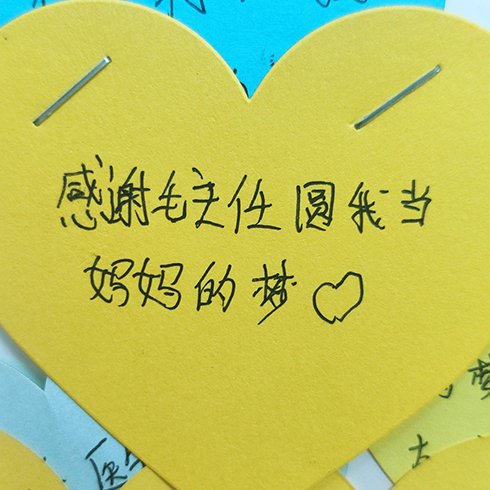 感谢毛主任圆我当
妈妈的梦♡
医生